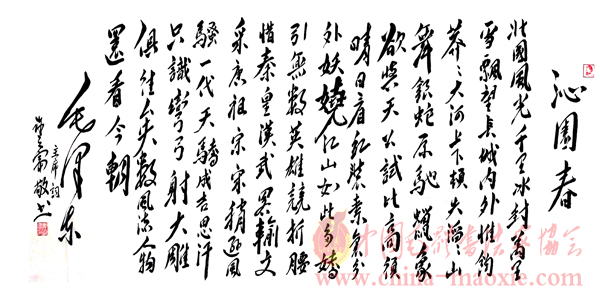 沁園春
北國風光千里冰封萬里
雪飄望長城內外惟餘
莽々大河上下頓失滔々山
舞銀蛇原馳蠟象
欲與天公試比高須
晴日看紅裝素裹分
外妖嬈江山如此多嬌
引無數英雄競折腰
惜秦皇漢武略輸文
采唐祖宗宋稍遜風
騷一代天驕成吉思汗
只識彎弓射大雕
俱往矣數風流人物
還看今朝
毛澤東
主席詞
敬书
www.china-maoxie.com